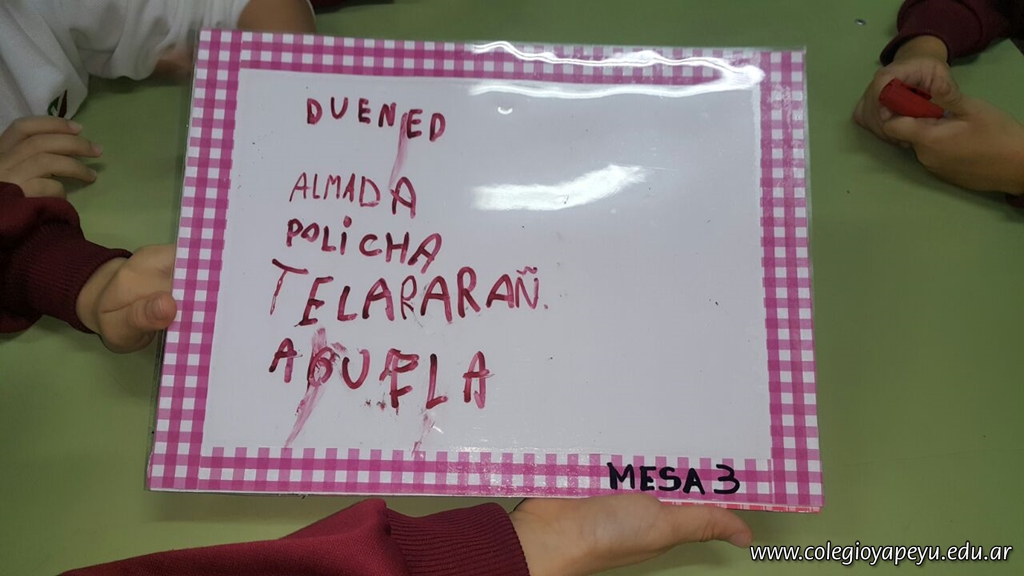 DUENED
ALMADA
POLICHA
TELARARAÑ.
ABUELA
MESA 3
www.colegioyapeyu.edu.ar